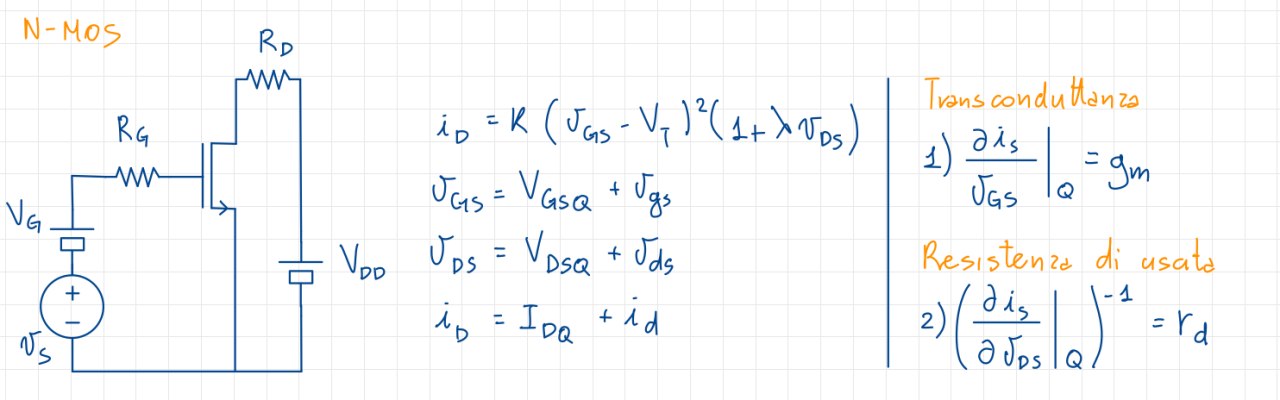 N-MOS
R_D
R_G
V_G
v_S
+
−
V_DD
i_D = K (v_GS - V_T)²(1+λv_DS)
v_GS = V_GSQ + v_gs
v_DS = V_DSQ + v_ds
i_D = I_DQ + i_d
Transconduttanza
1) ∂i_s / v_GS |_Q = g_m
Resistenza di usata
2) (∂i_s / ∂v_DS |_Q)^-1 = r_d